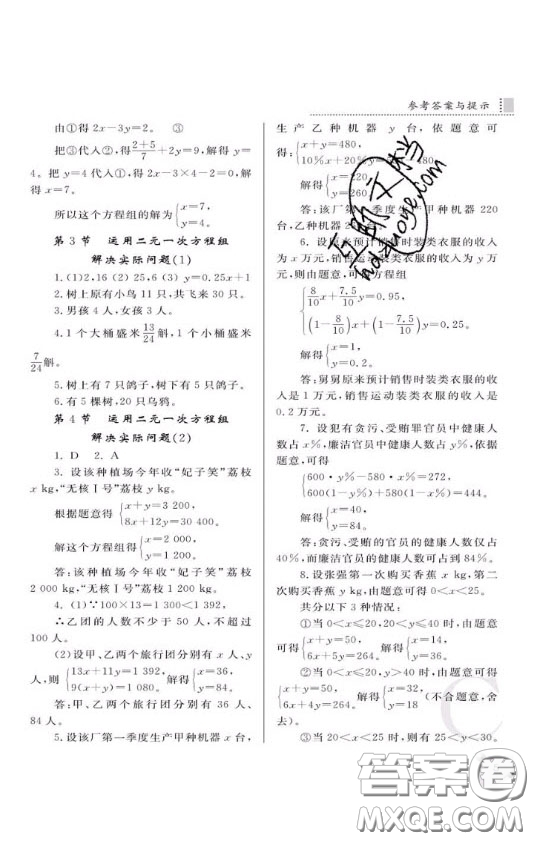 参考答案与提示
由①得 2x-3y=2. ③
把③代入②,得(2+5)/7+2y=9,解得 y=
4.把 y=4 代入①,得 2×3-4-2=0,解
得 x=7.
所以这个方程组的解为{x=7, y=4.
第3节 运用二元一次方程组
解决实际问题(1)
1.(1)2,16 (2)25 (3)y=0.25x+1
2.树上原有小鸟 11 只,共飞来 30 只.
3.男孩 4 人,女孩 3 人.
4.1 个大桶盛米13/24斛,1 个小桶盛米
7/24斛.
5.树上有 7 只鸽子,树下有 5 只鸽子.
6.有 5 棵树,20 只乌鸦.
第4节 运用二元一次方程组
解决实际问题(2)
1. D 2. A
3.设该种植场今年收“妃子笑”荔枝
x kg,“无核Ⅰ号”荔枝 y kg.
根据题意得{x+y=3 200, 8x+12y=30 400.
解这个方程组得{x=2 000, y=1 200.
答:该种植场今年收“妃子笑”荔枝
2 000 kg,“无核Ⅰ号”荔枝 1 200 kg.
4.(1)∵100×13=1 300<1 392,
∴乙团的人数不少于 50 人,不超过
100 人.
(2)设甲、乙两个旅行团分别有 x 人、y
人,则{13x+11y=1 392, 9(x+y)=1 080. 解得{x=36, y=84.
答:甲、乙两个旅行团分别有 36 人、
84 人.
5.设该厂第一季度生产甲种机器 x 台,
生产乙种机器 y 台,依题意可
得:{x+y=480, 10%x+20%y=
解得{x=220, y=260.
答:该厂第一季度生产甲种机器 220
台,乙种机器 2
6.设原来预计销售时装类衣服的收入
为 x 万元,销售运动装类衣服的收入为 y 万
元,则由题意,可得方程组
{8/10x+7.5/10y=0.95, (1-8/10)x+(1-7.5/10)y=0.25.
解得{x=1, y=0.2.
答:舅舅原来预计销售时装类衣服的收
入是 1 万元,销售运动装类衣服的收入是
0.2 万元.
7.设犯有贪污、受贿罪官员中健康人
数占 x%,廉洁官员中健康人数占 y%,依据
题意,可得
{600·y%-580·x%=272, 600(1-y%)+580(1-x%)=444.
解得{x=40, y=84.
答:贪污、受贿的官员的健康人数仅占
40%,而廉洁官员的健康人数可达到 84%.
8.设张强第一次购买香蕉 x kg,第二
次购买香蕉 y kg,由题意可得 0<x<25.
共分以下 3 种情况:
①当 0<x≤20,y≤40 时,由题意可得
{x+y=50, 6x+5y=264. 解得{x=14, y=36.
②当 0<x≤20,y>40 时,由题意可得
{x+y=50, 6x+4y=264. 解得{x=32, y=18 (不合题意,舍
去).
③当 20<x<25 时,则有 25<y<30.
hdzuoye.com
答案圈